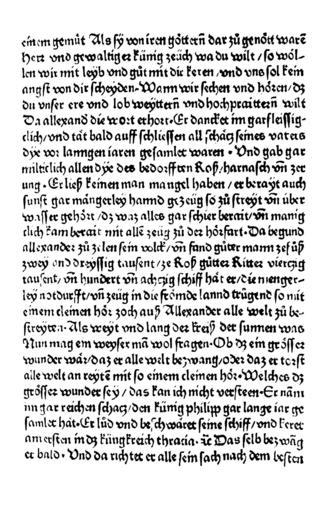 einem gemüt Als sÿ von iren göttern dar zů genött warē
hertz vnd gewaltiger künig zeüch wa du wilt / so wöl-
len wir mit leÿb vnd gůt mit dir keren / vnd vns sol kein
angst von dir scheyden · Wann wir sechen vnd hören / dz
du vnser ere vnd lob weÿttern vnd hochpraittern wilt
Da allexand die wort erhort · Er dancket im gar fleissig-
clich / vnd tät bald auff schliessen all schätz seines vaters
dÿe vor lanngen iaren gesamlet waren · Vnd gab gar
miltiklich allen dÿe des bedorfften Roß / harnasch vn̄ zer
ung · Er ließ keinen man mangel haben / er beraÿt auch
sunst gar mängerleÿ hannd gezeüg so zů streÿt vn̄ über
wasser gehört / dz waz alles gar schier berait / vn̄ manig
clich kam berait mit alle zeüg zů der hörfart · Da begund
allexander zů zelen sein volck / vn̄ fand gůter mann ze fůß
zweÿ vnd dreyssig tausent / ze Roß gůtter Ritter viertzig
tausent / vn̄ hundert vn̄ achtzig schiff hät er / die menger-
leÿ notdurfft / vn̄ zeüg in die frömde lannd trůgend so mit
einem cleinen hör zoch auß Allexander alle welt zů be-
streyten · Als weÿt vnd lang der kreiß der sunnen was
Nun mag ein weyser mā wol fragen · Ob dz ein grösser
wunder wär / daz er alle welt bezwang / oder daz er torst
alle welt an reÿten mit so einem cleinen hör · Welches dz
grösser wunder seÿ / das kan ich nicht versteen · Er nam
im gar reichen schatz / den künig philipp gar lange iar ge
samlet hät · Er lůd vnd beschwäret seine schiff / vnd keret
am ersten in dz küngkreich thracia · Das selb bezwāg
er bald · Vnd da richtet er alle sein sach nach dem besten